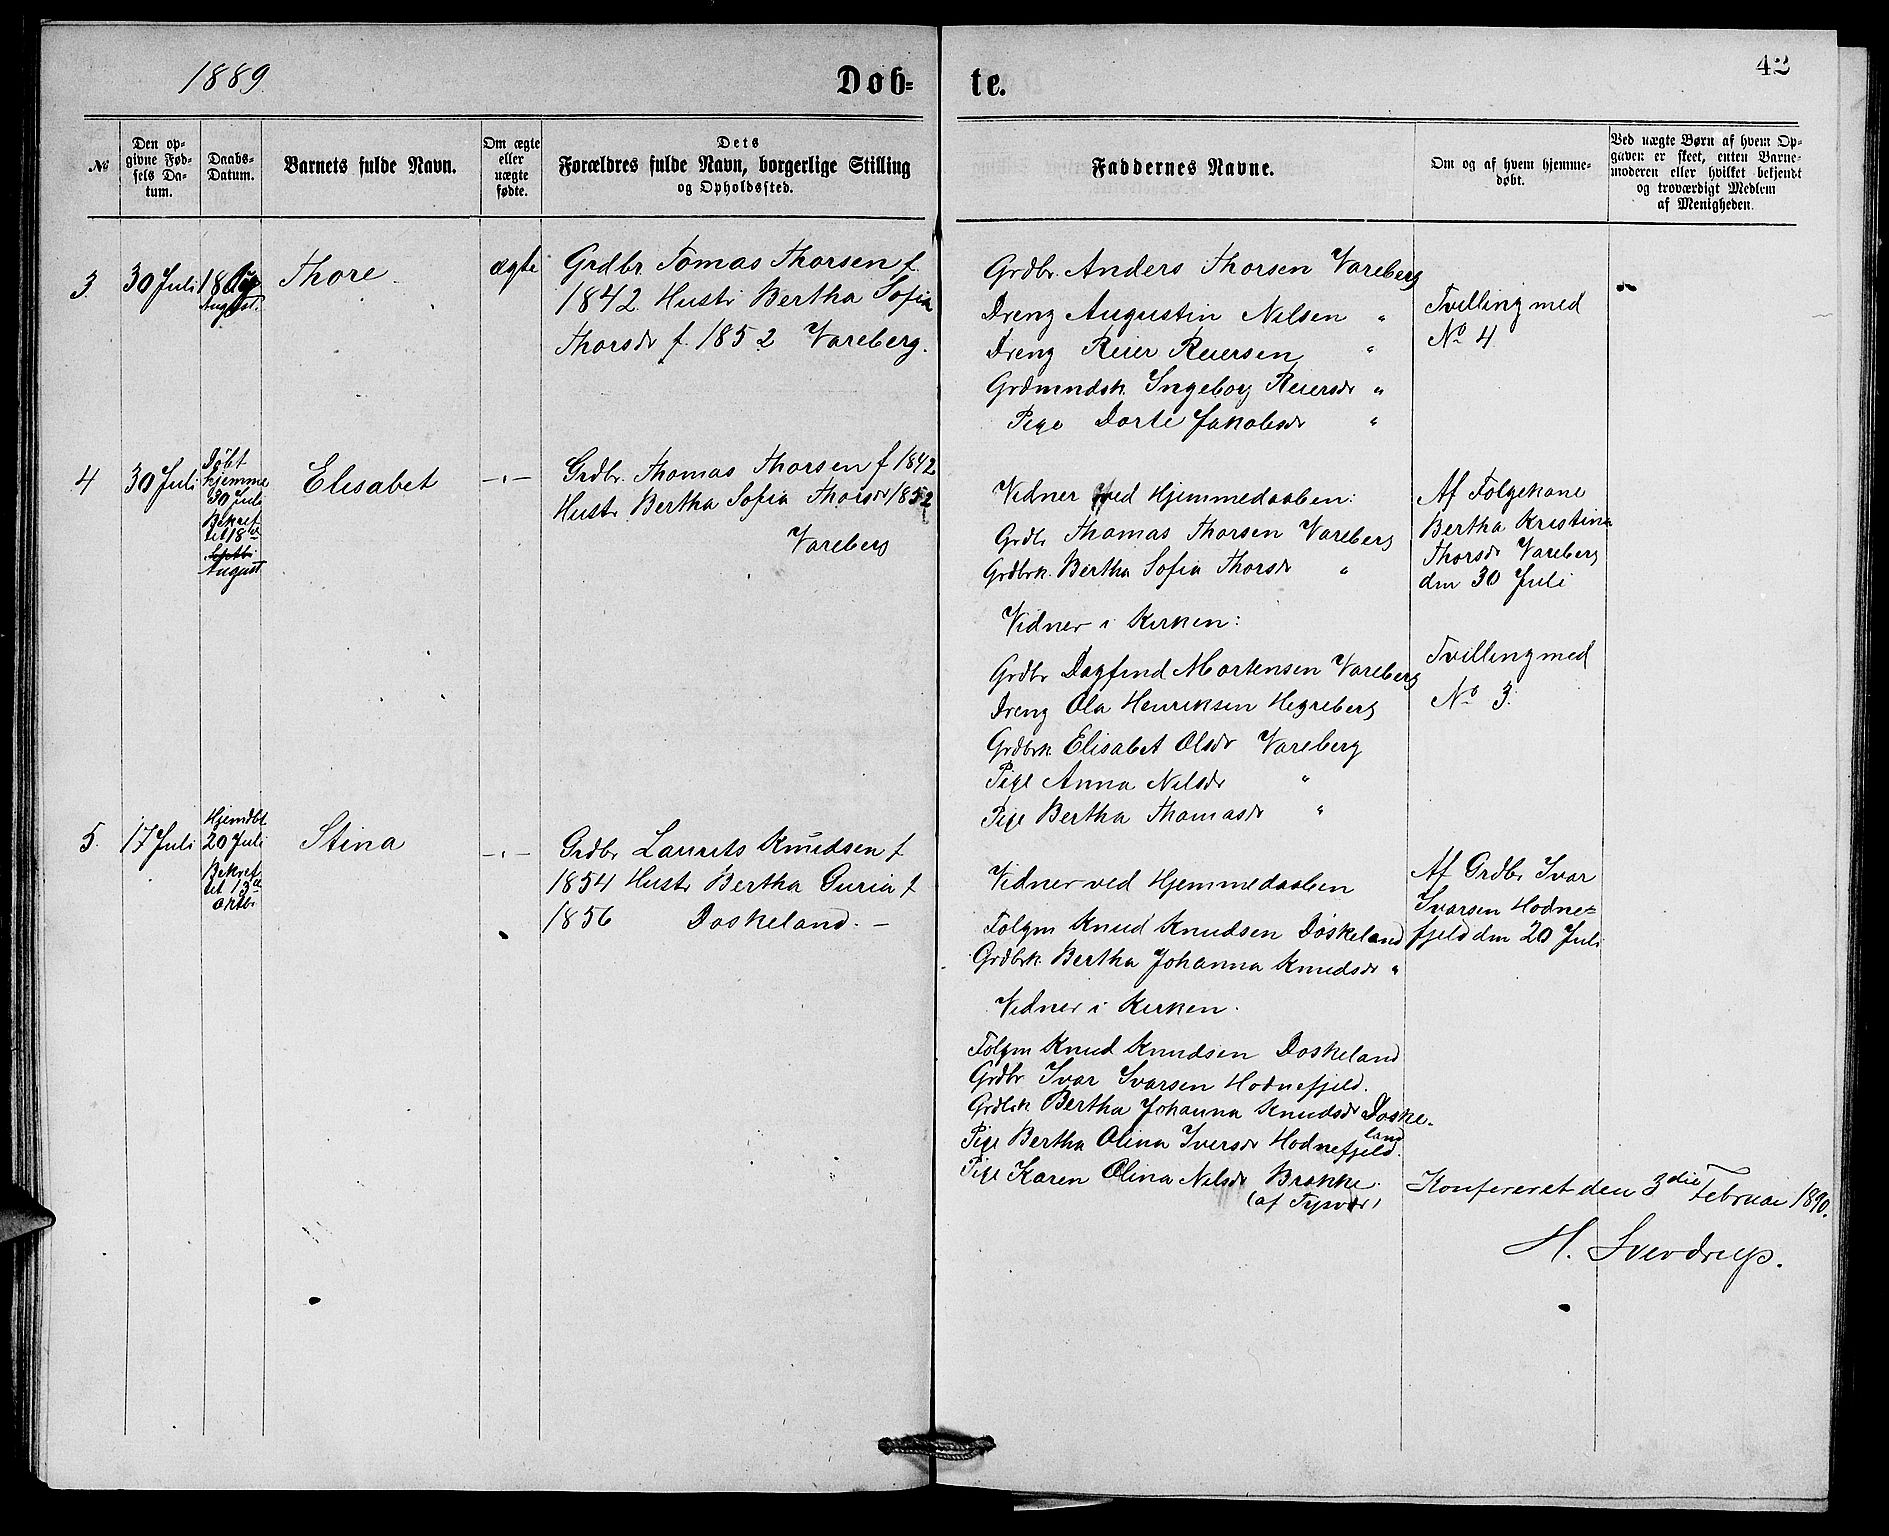 1889.
Døb-
te.
42
№
Den op-
givne Fød-
sels Da-
tum.
Daabs-
Datum.
Barnets fulde Navn.
Om ægte
eller
uægte
fødte.
Dets
Forældres fulde Navn, borgerlige Stilling
og Opholdssted.
Faddernes Navne.
Om og af hvem hjemme-
døbt.
Ved uægte Børn af hvem Op-
gaven er skeet, enten Barne-
moderen eller hvilket bekjendt
og troværdigt Medlem
af Menigheden.
3.
30 Juli
18
August.
Thore
ægte
Grdbr Tomas Thorsen f.
1842 Hustr Bertha Sofia
Thorsdr f. 1852 Vareberg.
Grdbr. Anders Thorsen Vareberg
Dreng Augustin Nilsen "
Dreng Reier Reiersen "
Grdmndsk. Ingeborg Reiersdr "
Pige Dorte Jakobsdr "
Tvilling med
No 4
4
30 Juli
Døbt
hjemme
30 Juli
Bekref
tet 18de
Septbr
August
Elisabet
-"-
Grdbr. Thomas Thorsen f 1842
Hustr Bertha Sofia Thorsdr 1852
Vareberg
Vidner ved Hjemmedaaben:
Grdbr Thomas Thorsen Vareberg
Grdbrk. Bertha Sofia Thorsdr "
Vidner i Kirken:
Grdbr Dagfind Mortensen Vareberg
Dreng Ola Henriksen Hegreberg
Grdbrk. Elisabet Olsdr Vareberg
Pige Anna Nilsdr "
Pige Bertha Thomasdr "
Af Følgekone
Bertha Kristina
Thorsdr Vareberg
den 30 Juli
Tvilling med
No 3.
5.
17 Juli
Hjemdbt
20 Juli
Bekref
tet 13de
Oktbr
Stina
-"-
Grdbr Laurits Knudsen f
1854 Hustr Bertha Guria f
1856 Døskeland. –
Vidner ved Hjemmedaaben
Følgm Knud Knudsen Døskeland
Grdbrk. Bertha Johanna Knudsdr "
Vidner i Kirken.
Følgm Knud Knudsen Døskeland
Grdbr Ivar Ivarsen Hodnefjeld.
Grdbrk Bertha Johanna Knudsdr Døske-
land
Pige Bertha Olina Iversdr Hodnefjeld.
Pige Karen Olina Nilsdr Brække.
(af Tysvær)
Af Grdbr Ivar
Ivarsen Hodne=
fjeld den 20 Juli
Konfereret den 3die Februar 1890.
H. Sverdrup.